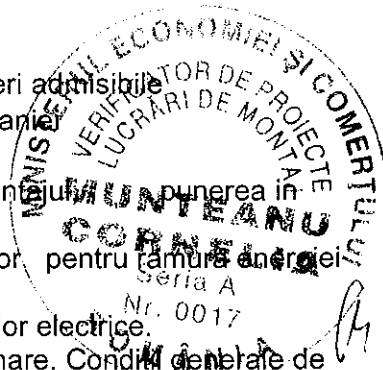 eri admisibile
aniei
punerea in
or pentru ramura energiei
or electrice.
nare. Conditii generale de
MINISTERUL ECONOMIEI ŞI COMERŢULUI
VERIFICATOR DE PROIECTE
LUCRĂRI DE MONTAJ
MUNTEANU
CORNELIA
Seria A
Nr. 0017
ROMÂNIA